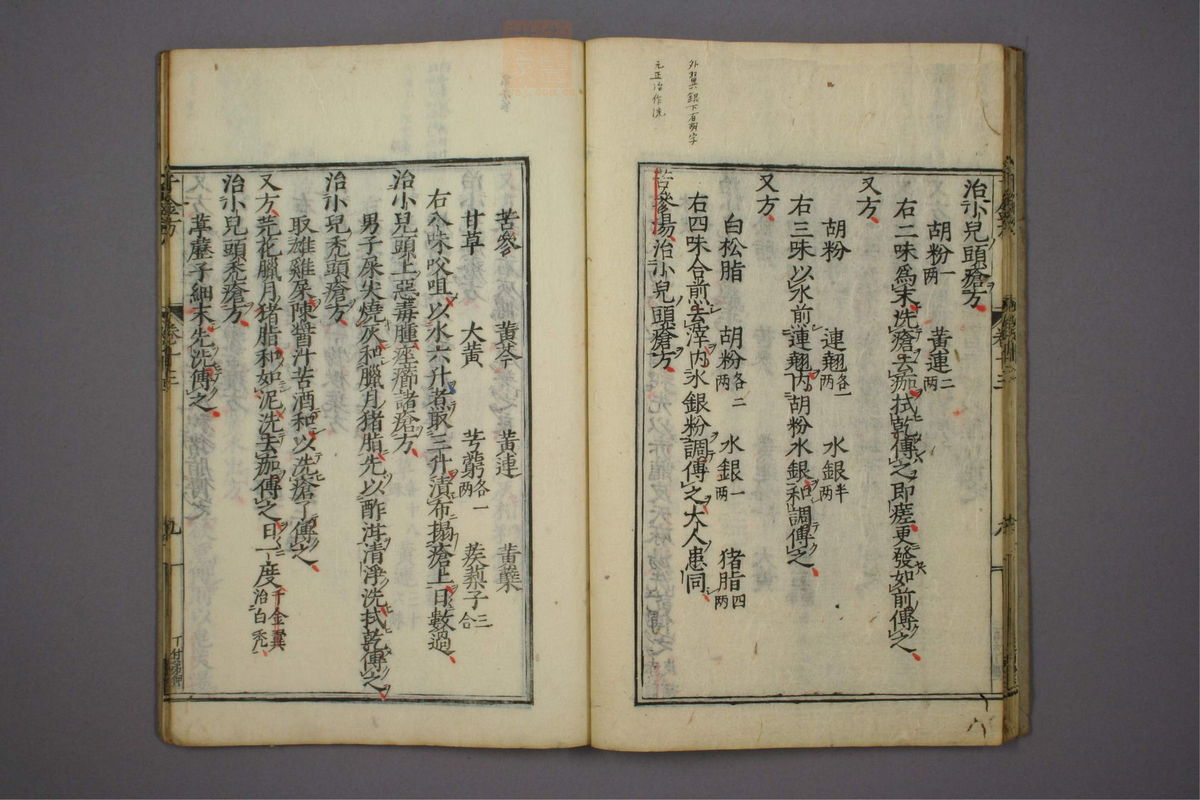 外翼銀下有朔字
元正治作洗
治小兒頭瘡方
胡粉一兩 黃連二兩
右二味爲末洗瘡去痂拭乾傅之即瘥更發如前傅之
又方
胡粉 連翹各一兩 水銀半兩
右三味以水煎連翹内胡粉水銀和調傅之
又方
白松脂 胡粉各二兩 水銀一兩 猪脂四兩
右四味合煎去滓内水銀粉調傅之大人患同
苦參湯治小兒頭瘡方
苦參 黃芩 黃連 黃蘗
甘草 大黃 芎藭各一兩 蒺藜子三合
右八味㕮咀以水六升煮取三升漬布搨瘡上日數過
治小兒頭上惡毒腫痤癤諸瘡方
男子屎尖燒灰和臘月猪脂先以酢泔清淨洗拭乾傅之
治小兒禿頭瘡方
取雄雞屎陳醬汁苦酒和以洗瘡了傅之
又方芫花臘月猪脂和如泥洗去痂傅之日一度千金翼治白禿
治小兒頭禿瘡方
葶藶子細末先洗傅之
千金方
卷十三
九